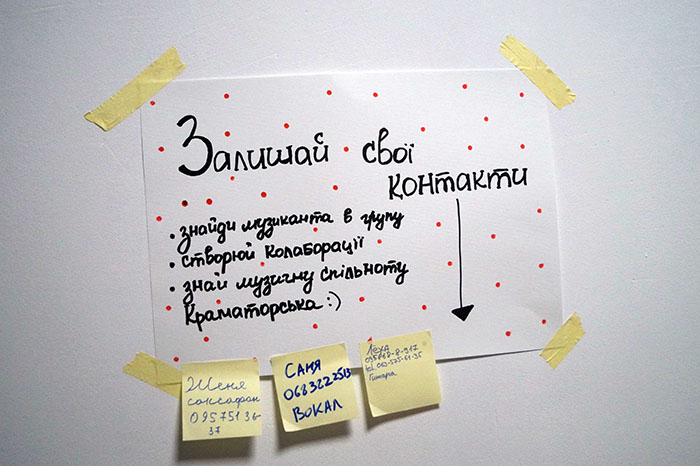 Залишай свої
контакти
• знайди музиканта в групу
• створюй колаборації
• знай музичну спільноту
Краматорська :)
Женя
саксофон
09575136-
37
САНЯ
0683222513
ВОКАЛ
ЛЁХА
Гитара